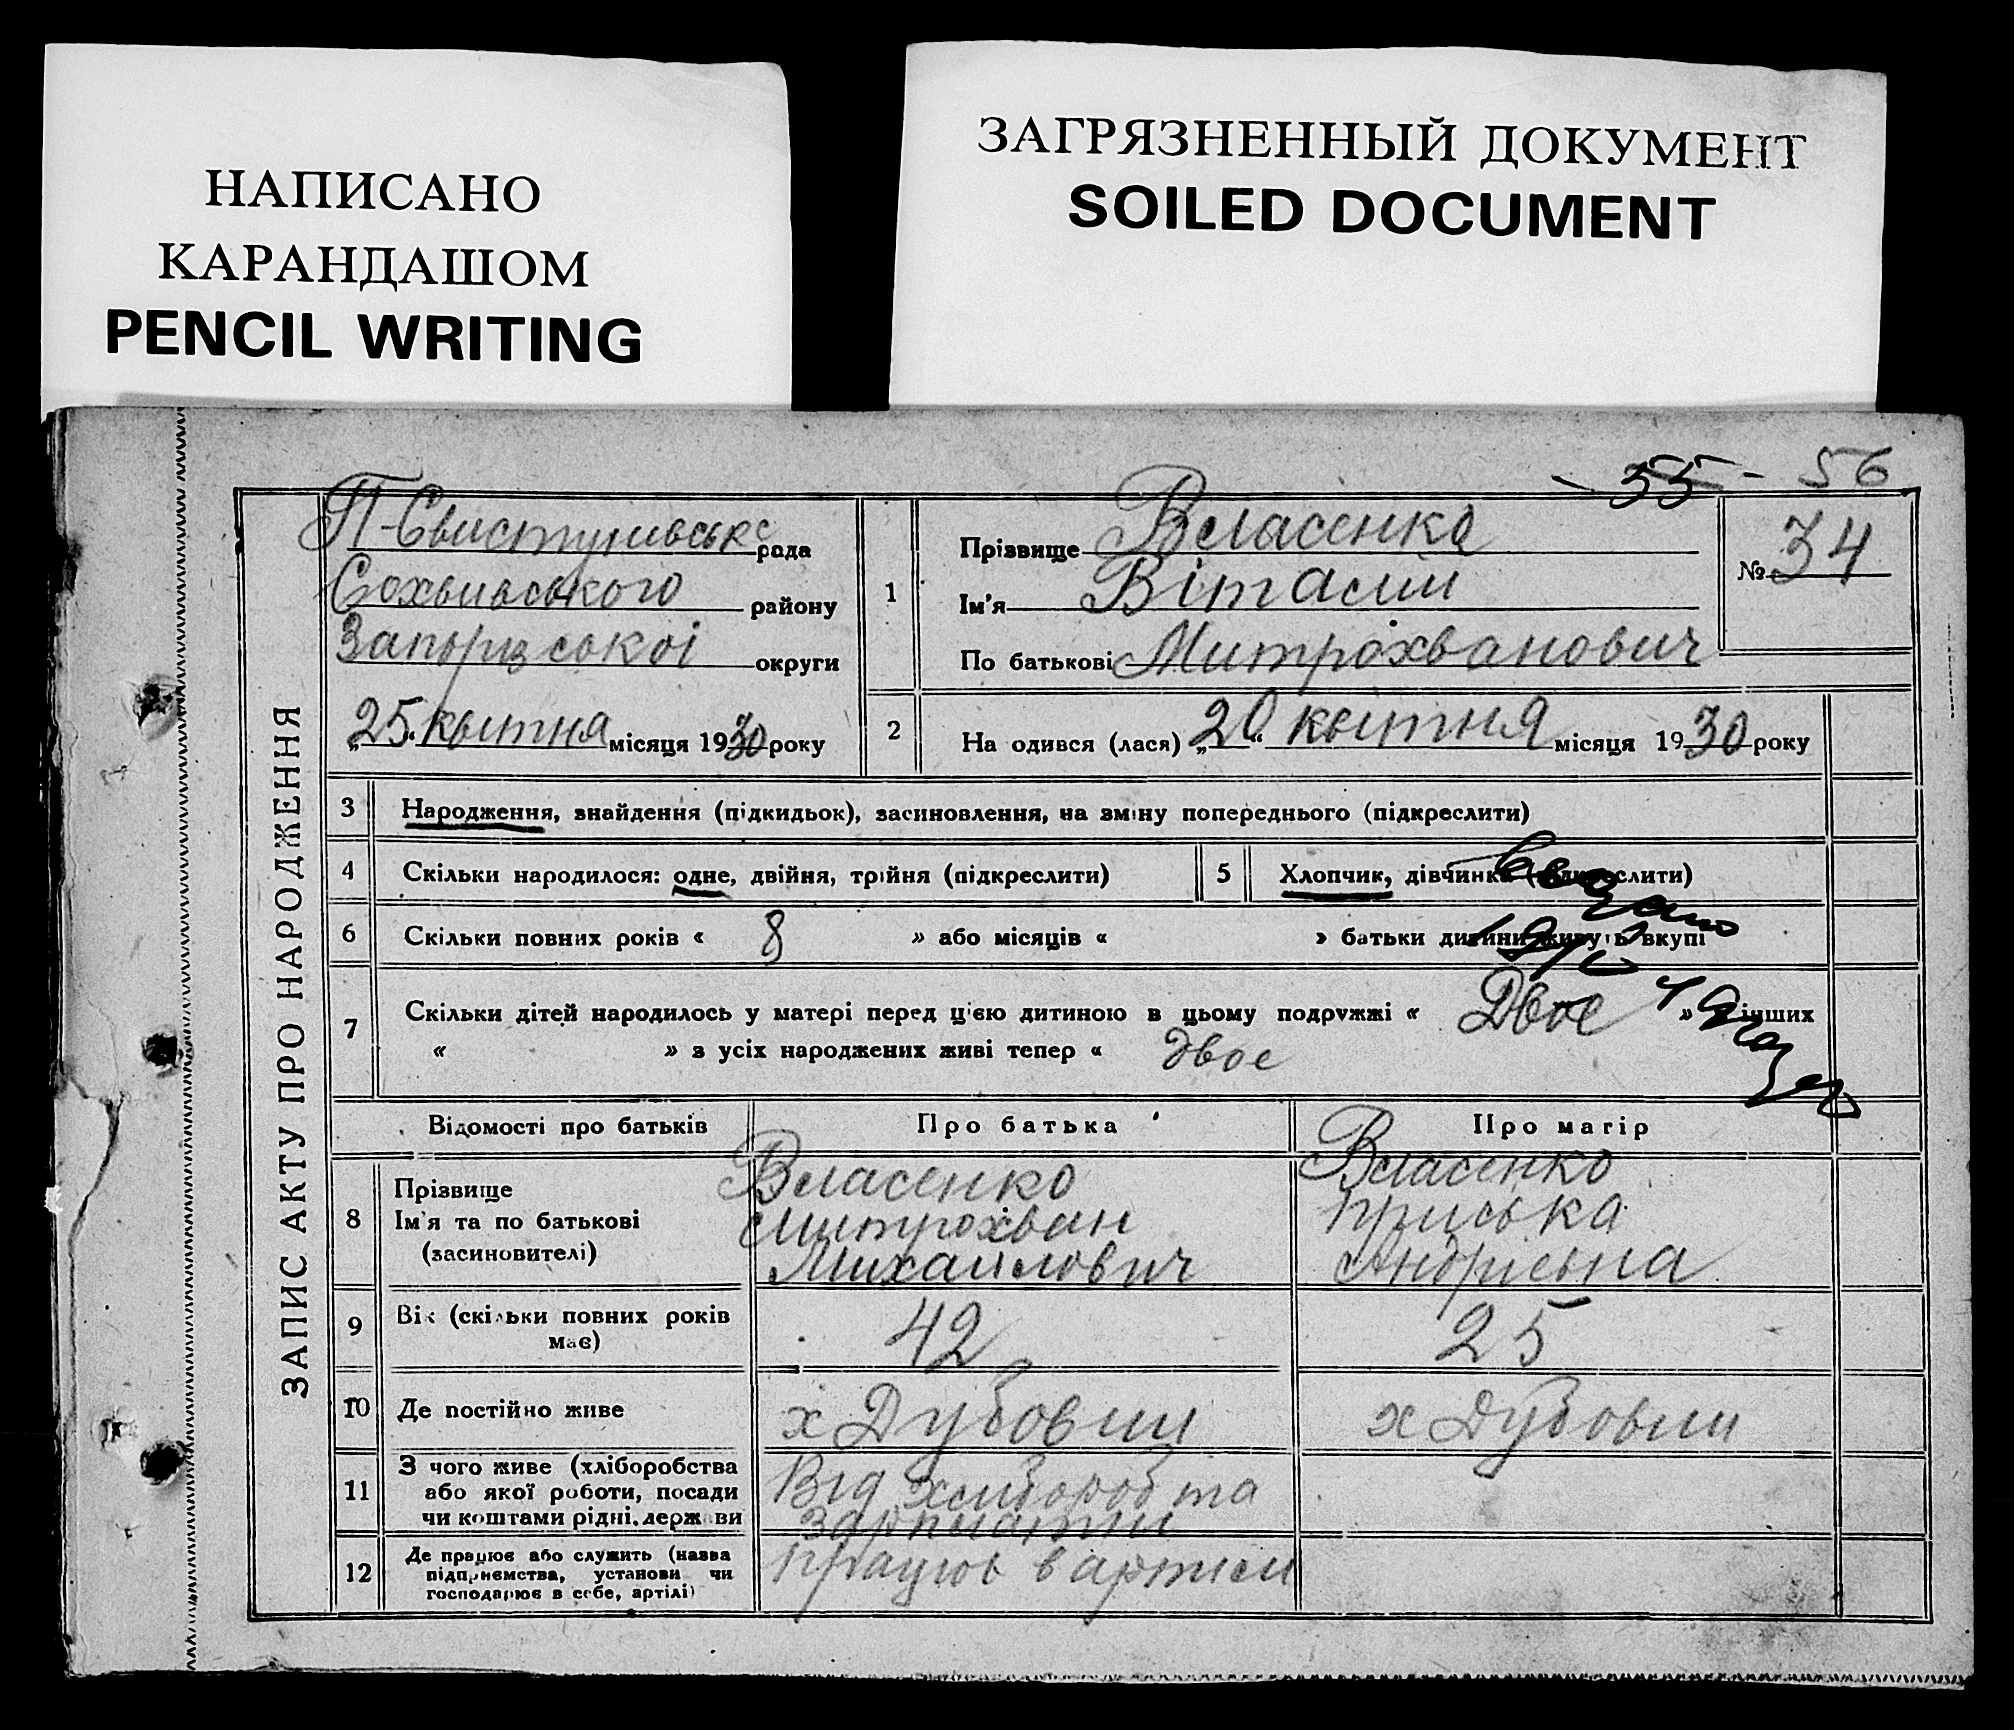 НАПИСАНО
КАРАНДАШОМ
PENCIL WRITING
ЗАГРЯЗНЕННЫЙ ДОКУМЕНТ
SOILED DOCUMENT
55 - 56
ЗАПИС АКТУ ПРО НАРОДЖЕННЯ
П-Свистунівська рада
района району
Запорізської округи
„25“ квітня місяця 1930 року
1 Прізвище Власенко
Ім'я Віталий
По батькові Митрохванович
№ 34
2 На одився (лася) „20“ квітня місяця 1930 року
3 Народження, знайдення (підкидьок), засиновлення, на зміну попереднього (підкреслити)
4 Скільки народилося: одне, двійня, трійня (підкреслити)
5 Хлопчик, дівчинка (підкреслити)
6 Скільки повних років « 8 » або місяців « » батьки дитини живуть вкупі
7 Скільки дітей народилось у матері перед ц'єю дитиною в цьому подружжі « Двоє » інших
« » з усіх народжених живі тепер « двоє
Відомості про батьків Про батька Про матір
8 Прізвище Власенко Власенко
Ім'я та по батькові Митрохван Приська
(засиновителі) Михайлович Андрієвна
9 Вік (скільки повних років має) 42 25
10 Де постійно живе х Дубовий х Дубовий
11 З чого живе (хліборобства Від хлібороб та
або якої роботи, посади зарплатні
чи коштами рідні, держави
12 Де працює або служить (назва працює в артілі
підприємства, установи чи
господарює в себе, артілі)